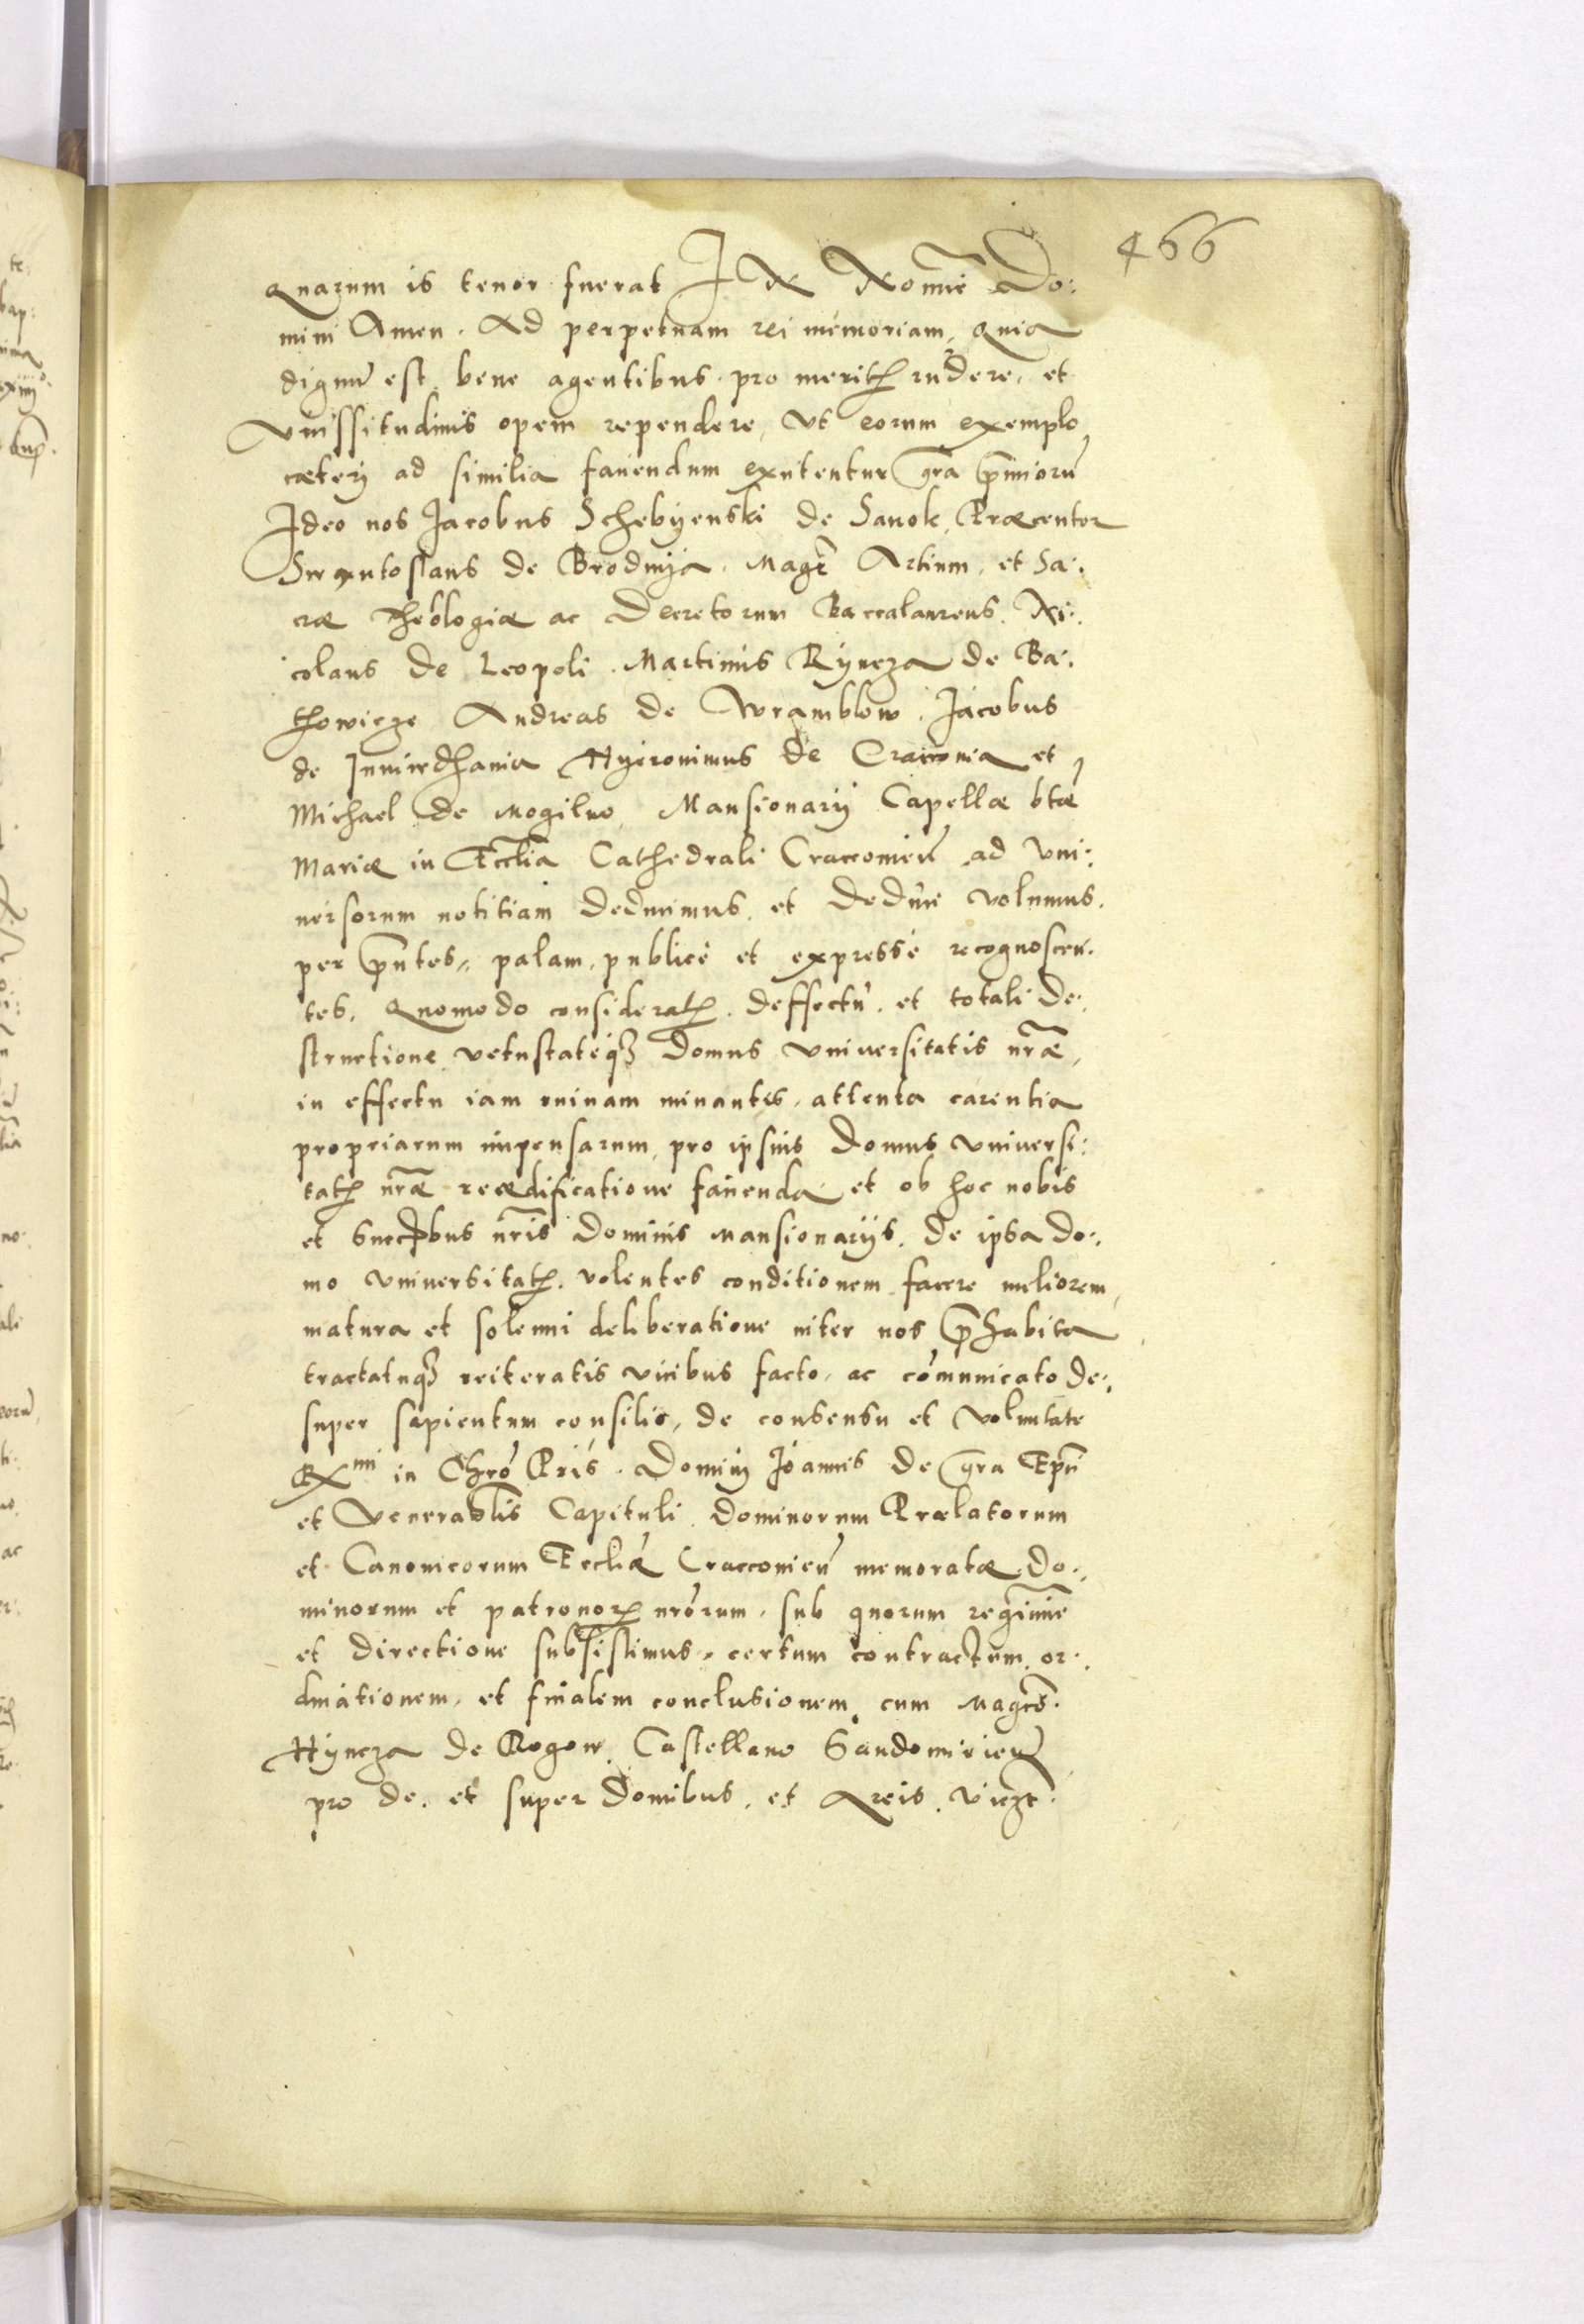 466
Quarum is tenor fuerat IN Nomie Do:
mini Amen. Ad perpetuam rei memoriam, quia
dignu est bene agentibus pro meritis rndere, et
vicissitudinis opem rependere, ut eorum exemplo
cæteri ad similia faciendum excitentur gra pmiorū
Ideo nos Jacobus Schebyenski de Sanok Præcentor
Swantoslaus de Brodnija. Magr Artium, et Sa:
cræ Theologiæ ac Decretorum Baccalaureus. Ni:
colaus de Leopoli. Martinus Ryncza de Ba:
thowicze Andreas de Wramblow. Jacobus
de Hyeronimus de Cracovia et
Michael de Mogilno, Mansionarij Capellæ btæ
Mariæ in Ecclia Cathedrali Cracovien ad vni:
uersorum notitiam deducimus, et deduci volumus.
per pntes, palam, publicè et expressè recognoscen:
tes. Quomodo consideratis. deffectu. et totali de:
structione vetustateq3 domus vniuersitatis nræ,
in effectu iam ruinam minantis, attenta carentia
propriarum impensarum, pro ipsius domus vniuersi:
tatis nræ reædificatione facienda et ob hoc nobis
et Succribus nris Dominis Mansionarijs. de ipsa do:
mo vniuersitatis. volentes conditionem facere meliorem,
matura et solenni deliberatione inter nos phabita
tractatuq3 reiteratis vicibus facto, ac comunicato de:
super sapientum consilio, de consensu et voluntate
Rx mi in Chro Pris. Domini Joannis de gra Epū
et Venerablis Capituli Dominorum Prælatorum
et Canonicorum Eccliæ Cracovien memoratæ Do:
minorum et patronorum nrorum, sub quorum regimine
et directione subsistimus, certum contractum, or:
dinationem, et finalem conclusionem cum Magco.
Hyncza de Rogow Castellano Sandomirien
pro de. et super domibus, et Areis.